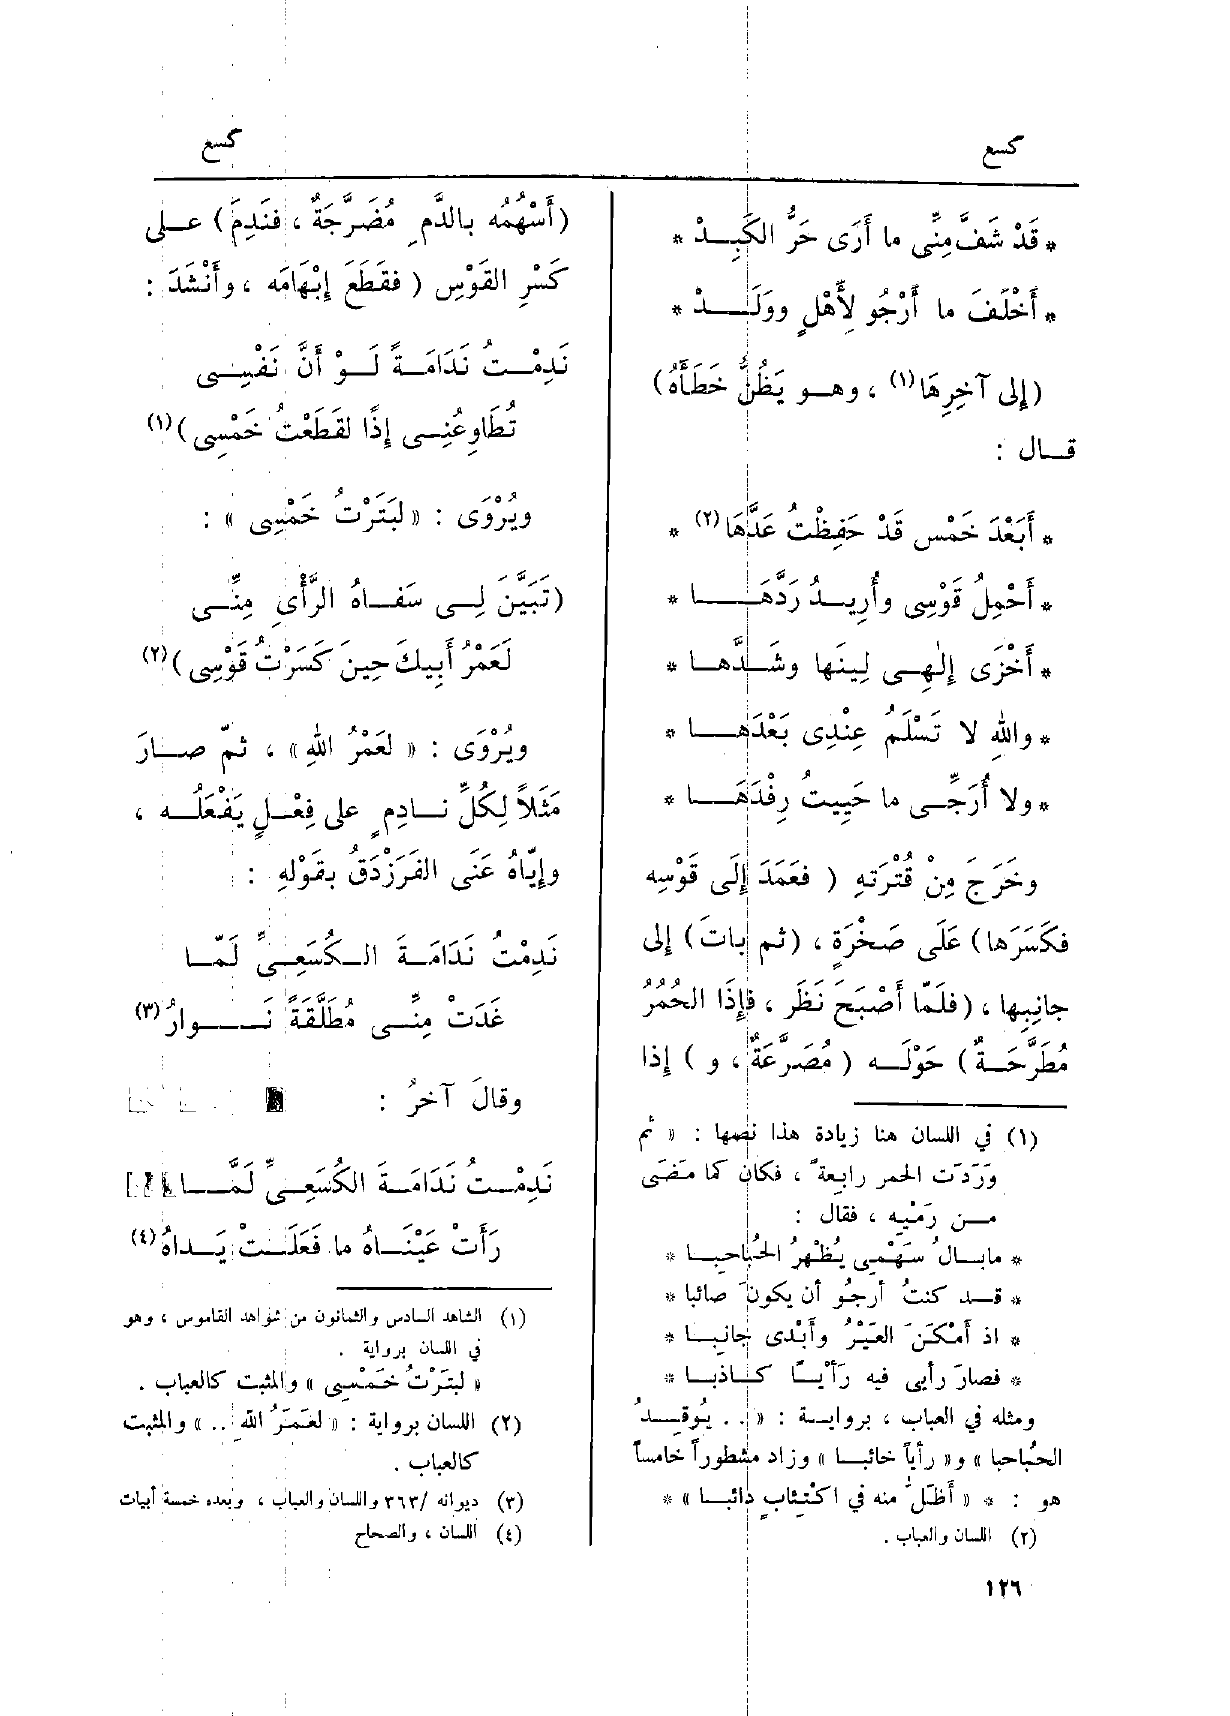 كسع
كسع
* قَدْ شَفَّ مِنِّى ما أَرَى حَرُّ الكَبِـدْ *
* أَخْلَفَ ما أَرْجُو لِأَهْلٍ ووَلَـــدْ *
(إلى آخِرِهَا(١) ، وهـو يَظُنُّ خَطَأَهُ)
قـال :
* أَبَعْدَ خَمْسٍ قَدْ حَفِظْتُ عَدَّهَا(٢) *
* أَحْمِلُ قَوْسِى وأُرِيـدُ رَدَّهَـــا *
* أَخْزَى إلٰهِـى لِينَها وشَـدَّهـا *
* واللهِ لا تَسْلَمُ عِنْدِى بَعْدَهـــا *
* ولا أُرَجِّـى ما حَيِيتُ رِفْدَهَـــا *
وخَرَجَ مِنْ قُتْرَتهِ ( فعَمَدَ إلَى قَوْسِه
فكَسَرَها) عَلَى صَخْرَةٍ ، (ثم باتَ) إلى
جانِبِها ، (فلَمّا أَصْبَحَ نَظَر ، فإذَا الحُمُرُ
مُطَرَّحَـةٌ) حَوْلَـه ( مُصَرَّعَةٌ ، و ) إذا
(١) في اللسان هنا زيادة هذا نصها : « ثم
وَرَدَت الحمر رابعةً ، فكان كما مَضَى
مـن رَمْيِه ، فقال :
* مابـالُ سَهْمِى يُظْهِرُ الحُبَاحِبـا *
* قـد كنتُ أرجُو أن يكونَ صائبا *
* اذ أَمْكَنَ العَيْرُ وأَبْدى جانِبـا *
* فصارَ رأيى فيه رَأْيـًا كـاذبا *
ومثله في العباب ، بروايـة : « .. يُوقِـدُ
الحُباحبا » و« رأياً خائبـا » وزاد مشطوراً خامساً
هو : * « أظَلُّ منه في اكْتِئابٍ دائبـا » *
(٢) اللسان والعباب .
١٢٦
(أَسْهُمُه بالدَّمِ مُضَرَّجَةٌ ، فنَدِمَ) عـلى
كَسْرِ القَوْسِ ( فقَطَعَ إبْهَامَه ، وأَنْشَدَ :
نَدِمْـتُ نَدَامَـةً لَـوْ أَنَّ نَفْسِـى
تُطَاوِعُنِـى إذًا لقَطَعْتُ خَمْسِى )(١)
ويُرْوَى : « لبَتَرْتُ خَمْسِى » :
(تَبَيَّنَ لِـى سَفـاهُ الرَّأْىِ مِنِّـى
لَعَمْرُ أَبِيكَ حِينَ كَسَرْتُ قَوْسِى )(٢)
ويُرْوَى : « لعَمْرُ اللهِ» ، ثمّ صـارَ
مَثَلاً لِكُلِّ نـادِمٍ على فِعْـلٍ يَفْعَلُـه ،
وإيّاهُ عَنَى الفَرَزْدَقُ بقوْلهِ :
نَدِمْتُ نَدَامَةَ الـكُسَعِىِّ لَمّـا
غَدَتْ مِنِّـى مُطَلَّقَةً نَـــوارُ(٣)
وقالَ آخرُ :
نَدِمْـتُ نَدَامَـةَ الكُسَعِـىِّ لَمَّـا
رَأَتْ عَيْنَـاهُ ما فَعَلَـتْ يَـداهُ(٤)
(١) الشاهد السادس والثمانون من شواهد القاموس ، وهو
في اللسان برواية .
« لبتَرْتُ خَمْسِى » والمثبت كالعباب .
(٢) اللسان برواية : « لعَمَرُ اللهِ .. » والمثبت
كالعباب .
(٣) ديوانه /٣٦٣ واللسان والعباب ، وبعده خمسة أبيات
(٤) اللسان ، والصحاح